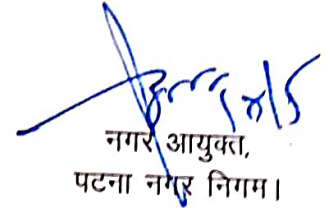 नगर आयुक्त,
पटना नगर निगम।